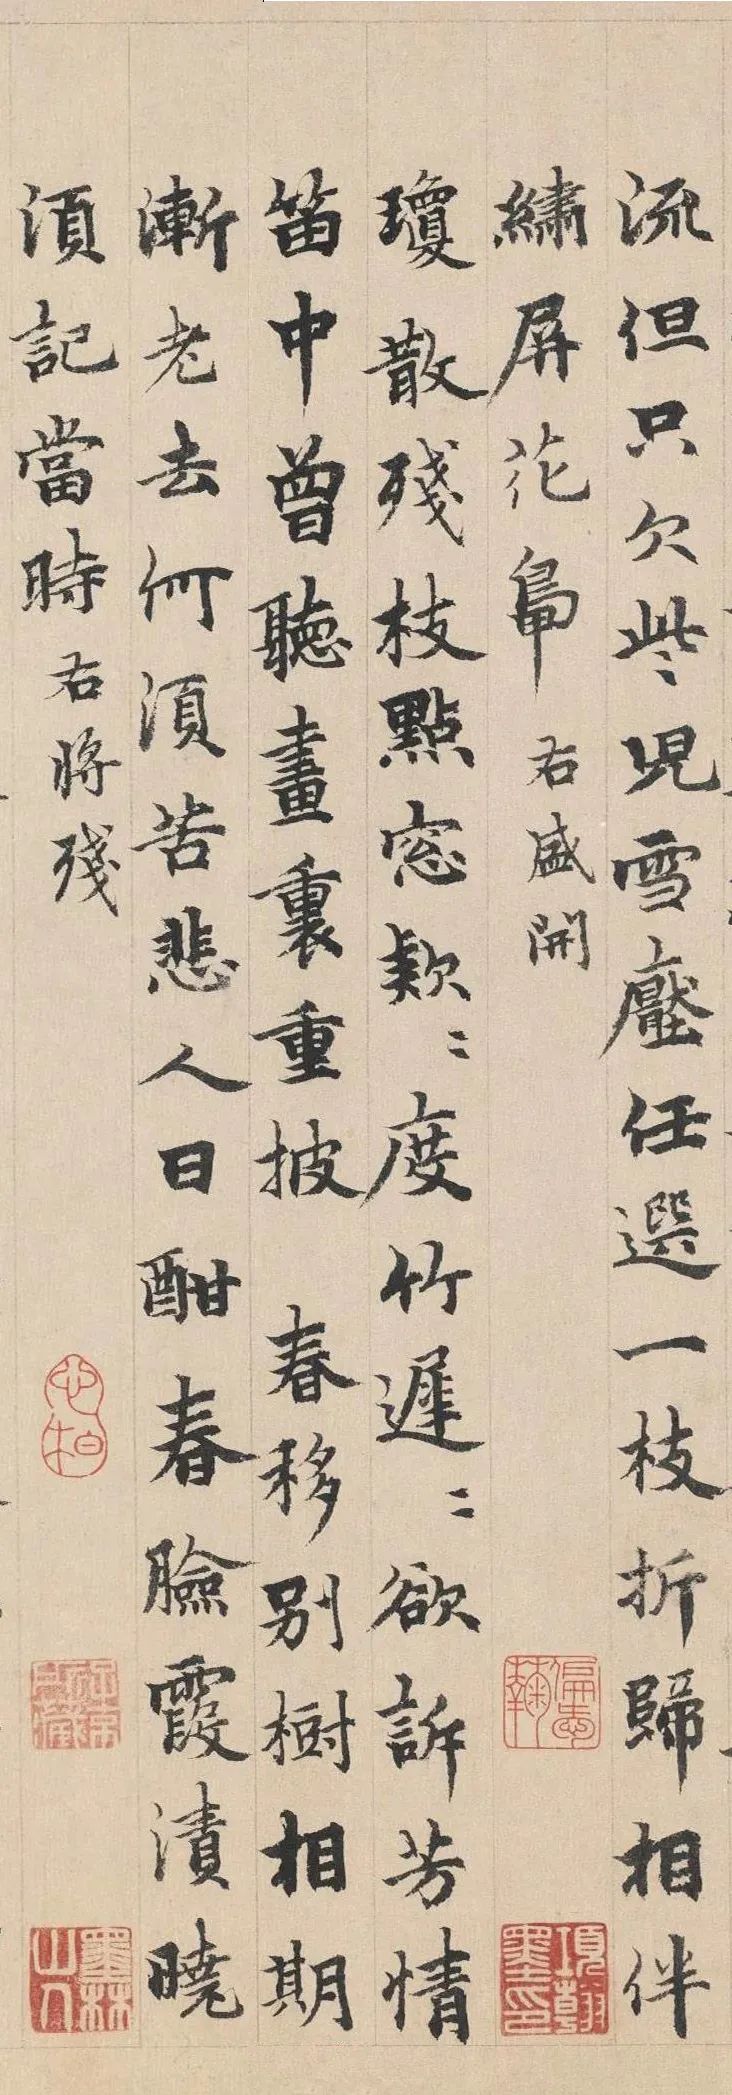 流但只欠些〻兒雪壓任選一枝折歸相伴
繡屏花鴨 右盛開
瓊散殘枝點窓款〻度竹遲〻欲訴芳情
笛中曾聽畫裏重披 春移別樹相期
漸老去何須苦悲人日酣春臉霞漬曉
須記當時 右將殘
項翰墨印
墨林山人